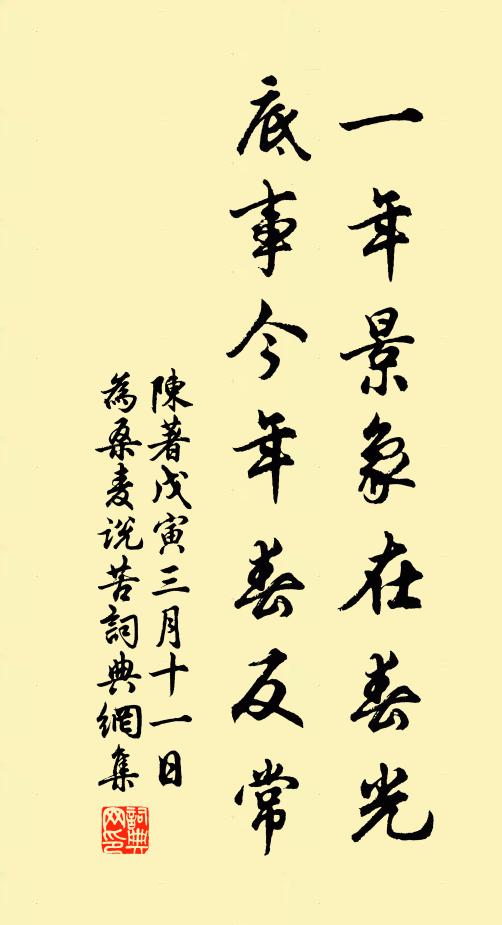 一年景象在春光
底事今年春反常
陳著戊寅三月十一日
為桑麦说苦詞典網集
詞典
网印